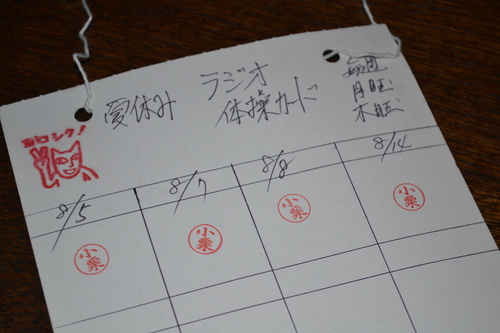 ヨロシク!
夏休み
ラジオ
体操カード
毎週
月曜
木曜
8/5
8/7
8/8
8/14
小栗
小栗
小栗
小栗